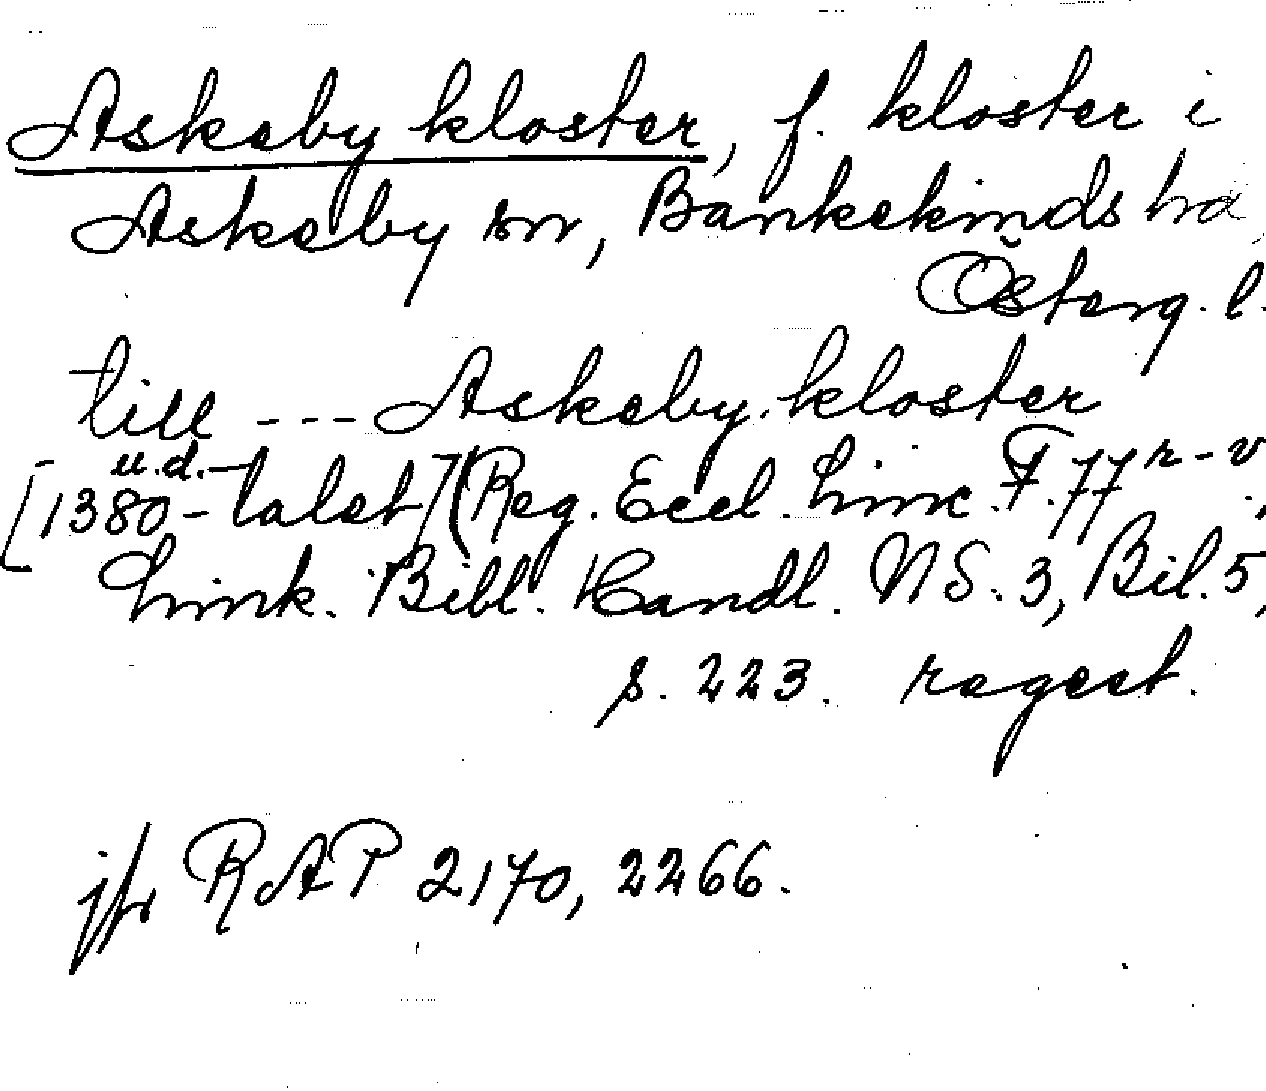 Askeby kloster, f. kloster i
Askeby sn, Bankekinds hd,
Österg. l.
till --- Askeby kloster
u.d.
[1380-talet] (Reg. Eccl. Linc. F. 77 r-v;
Link. Bibl. Handl. NS. 3, Bil. 5,
s. 223. regest.
jfr RAP 2170, 2266.